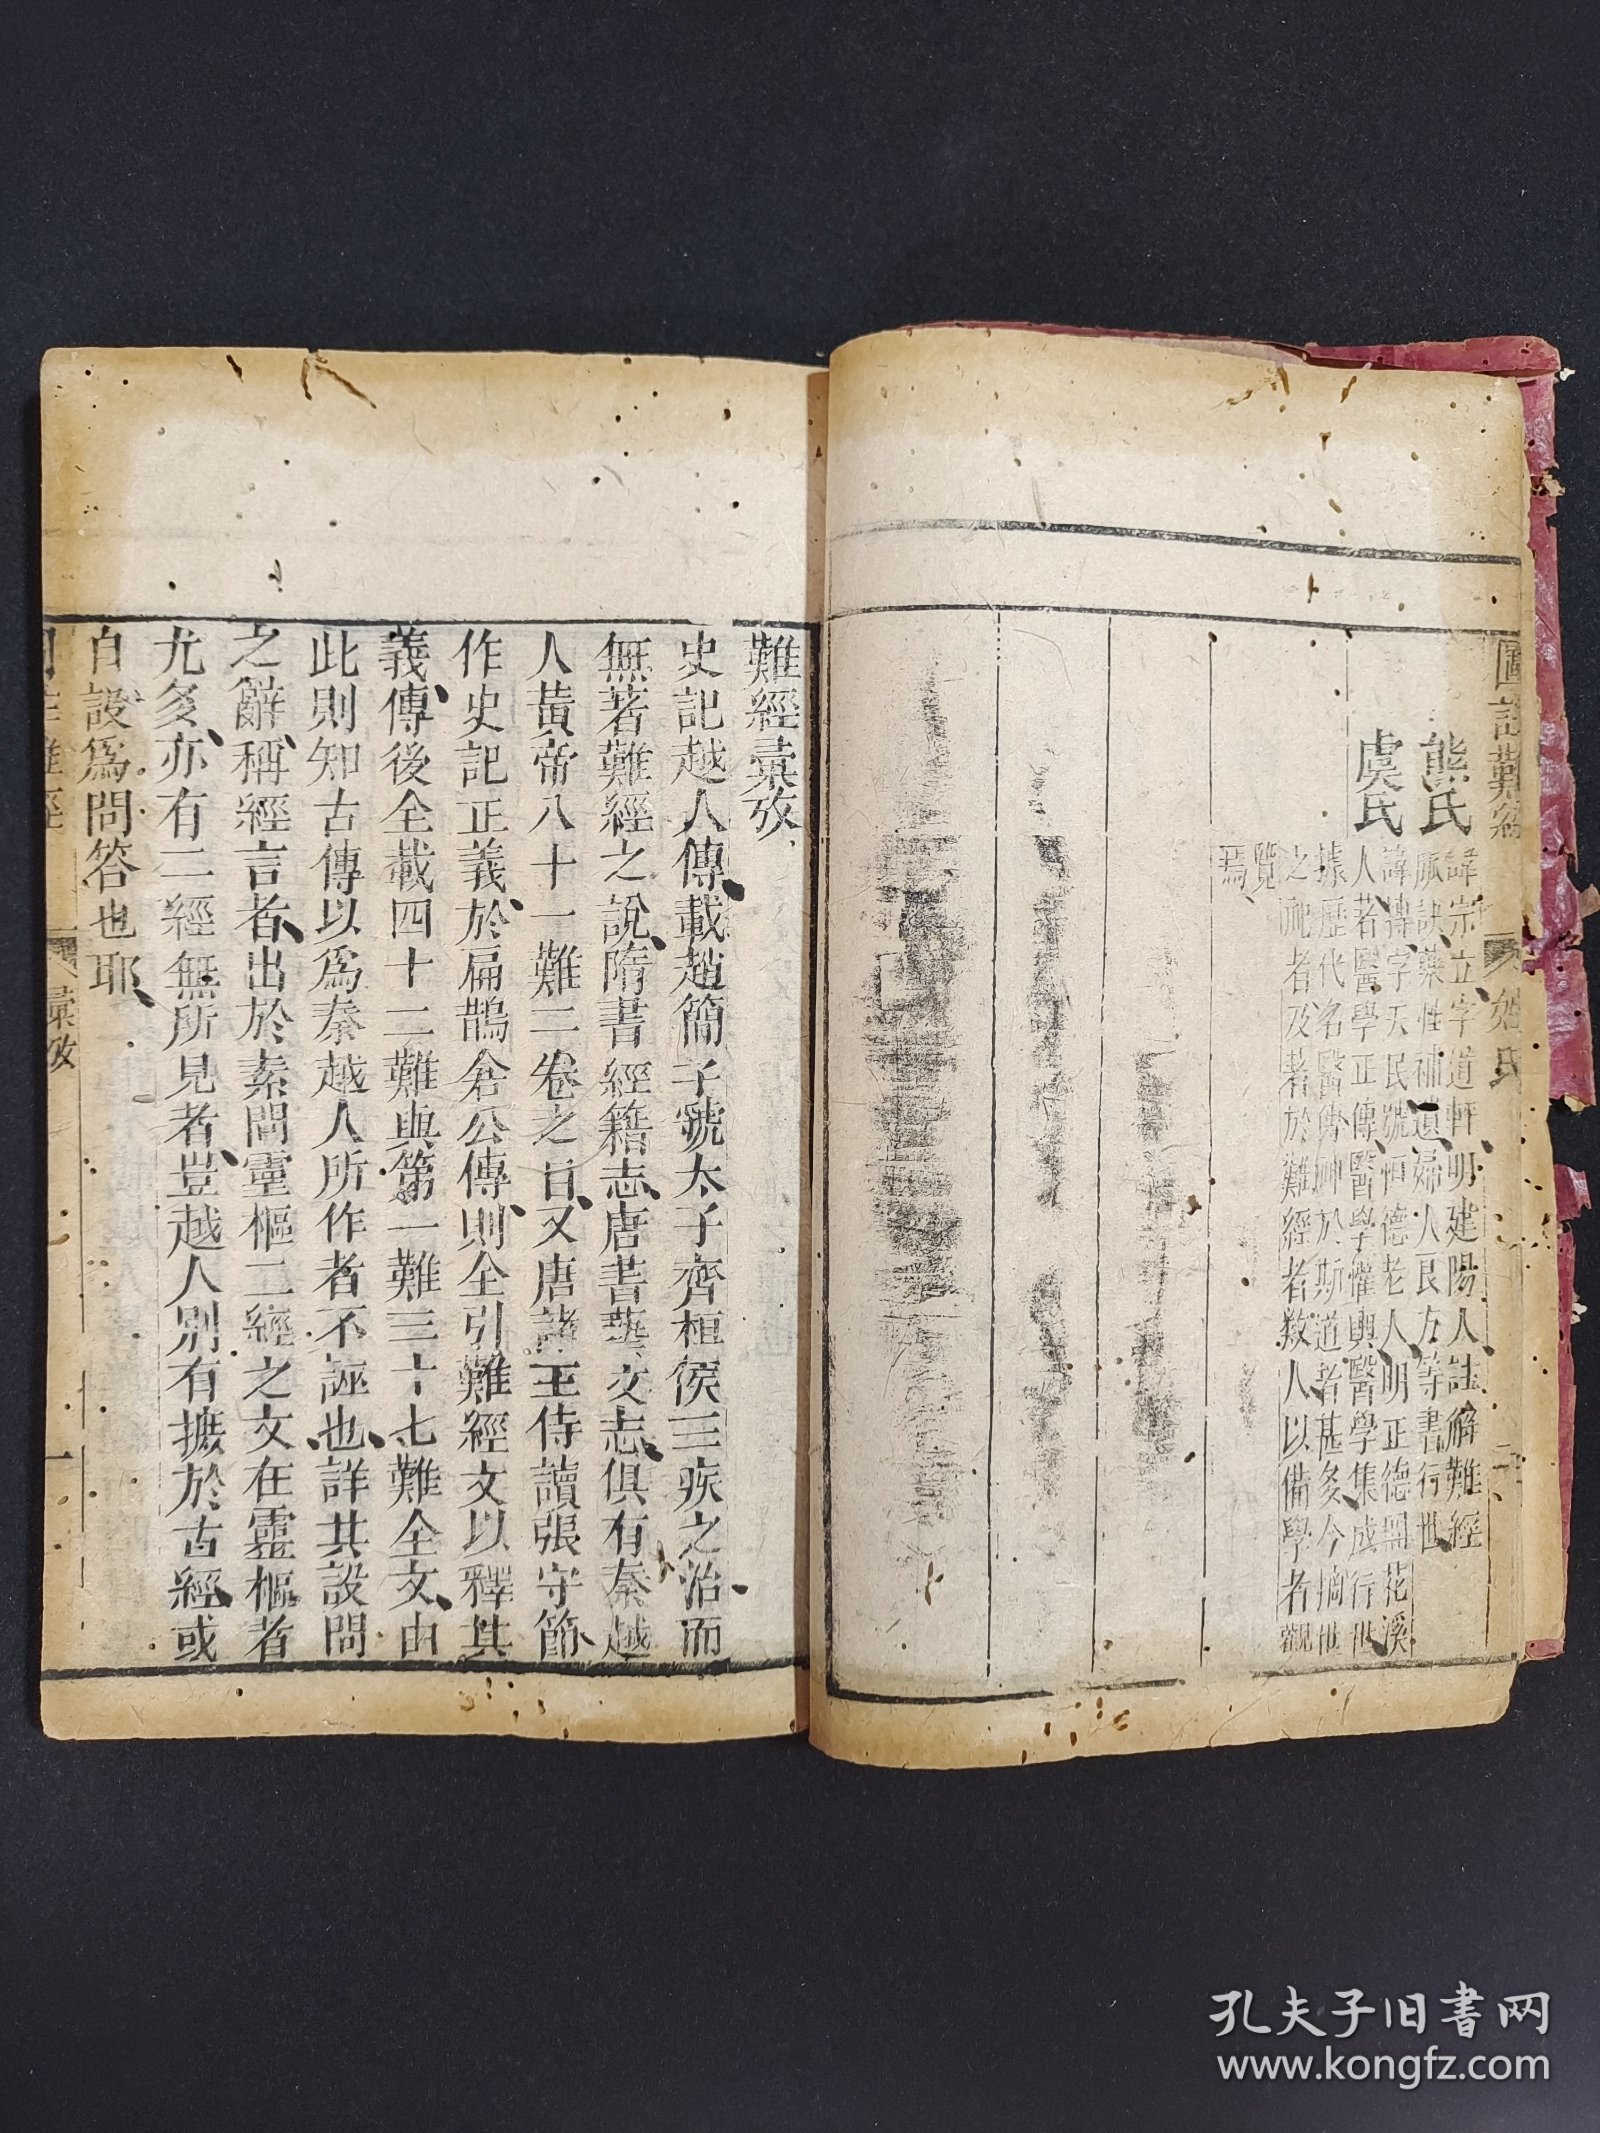 熊氏
諱宗立字道軒明建陽人註解難經
脈訣藥性補遺婦人良方等書行世
虞氏
諱摶字天民號恒德老人明正德間花溪
人著醫學正傳醫學權輿醫學集成行世
據歷代名醫傳
於斯道者甚多今摘世
之
者及著於難經者数人以備學者觀
覽
焉
姓氏
二
難經彙攷
史記越人傳載趙簡子虢太子齊桓侯三疾之治而
無著難經之說隋書經籍志唐書藝文志俱有秦越
人黃帝八十一難二卷之目又唐諸王侍讀張守節
作史記正義於扁鵲倉公傳則全引難經文以釋其
義傳後全載四十二難與第一難三十七難全文由
此則知古傳以爲秦越人所作者不誣也詳其設問
之辭稱經言者出於素問靈樞二經之文在靈樞者
尤多亦有二經無所見者豈越人別有摭於古經或
自設爲問答也耶
彙攷
一
孔夫子旧书网
www.kongfz.com